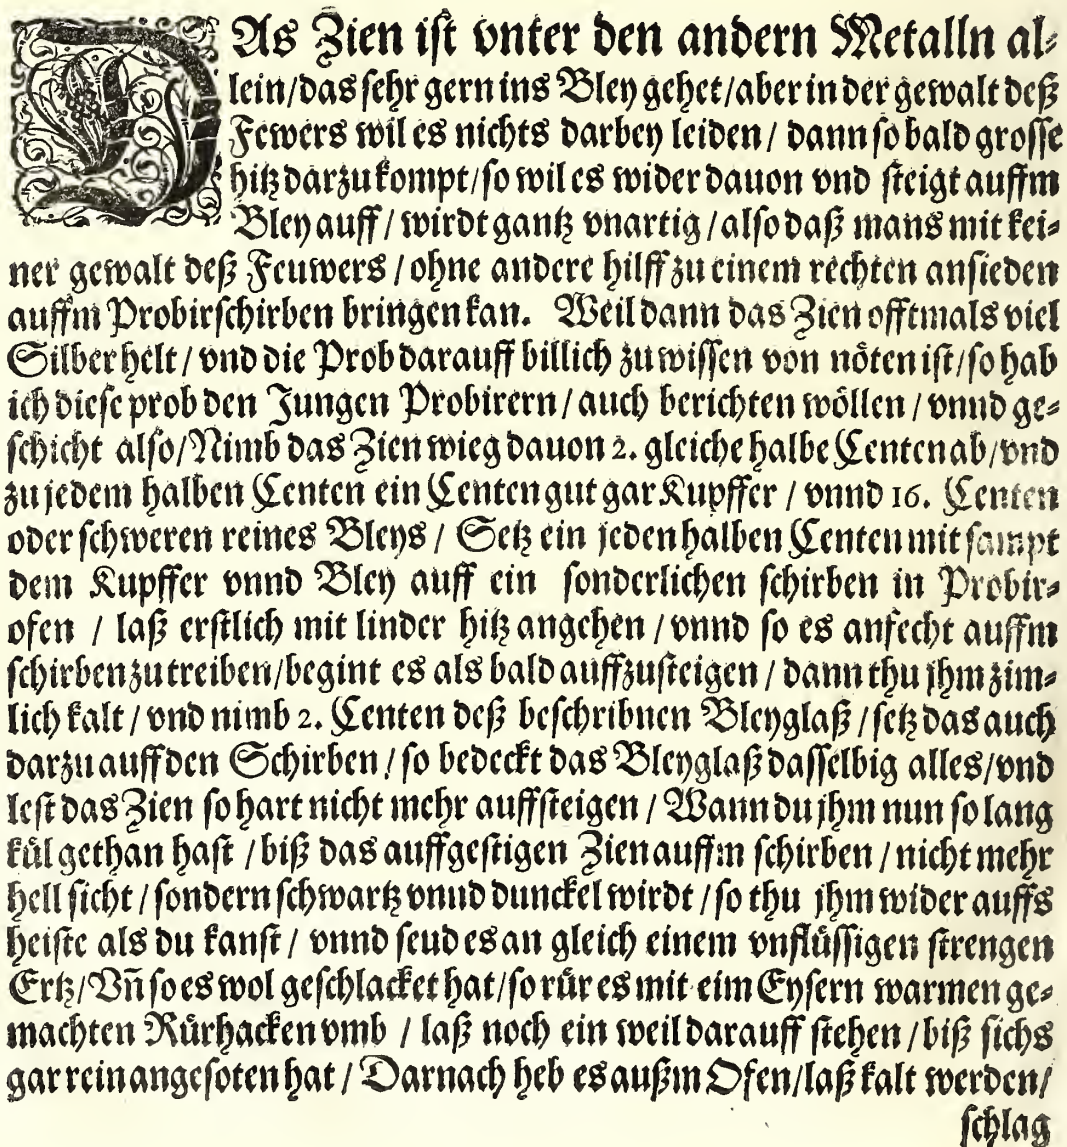 DAs Zien iſt vnter den andern Metalln al⸗
lein/das ſehr gern ins Bley gehet/aber in der gewalt deß
Fewers wil es nichts darbey leiden/ dann ſo bald groſſe
hitz darzu kompt/ſo wil es wider dauon vnd ſteigt auffm
Bley auff/ wirdt gantz vnartig/alſo daß mans mit kei⸗
ner gewalt deß Feuwers/ohne andere hilff zu einem rechten anſieden
auffm Probirſchirben bringen kan. Weil dann das Zien offtmals viel
Silber helt/vnd die Prob darauff billich zu wiſſen von nöten iſt/ſo hab
ich dieſe prob den Jungen Probirern/auch berichten wöllen/vnnd ge⸗
ſchicht alſo/Nimb das Zien wieg dauon 2. gleiche halbe Centen ab/vnd
zu jedem halben Centen ein Centen gut gar Kupffer/vnnd 16. Centen
oder ſchweren reines Bleys/ Setz ein jeden halben Centen mit ſampt
dem Kupffer vnnd Bley auff ein ſonderlichen ſchirben in Probir⸗
ofen / laß erſtlich mit linder hitz angehen/vnnd ſo es anfecht auffm
ſchirben zu treiben/begint es als bald auffzuſteigen/dann thu jhm zim⸗
lich kalt/vnd nimb 2. Centen deß beſchribnen Bleyglaß/ſetz das auch
darzu auff den Schirben/ſo bedeckt das Bleyglaß daſſelbig alles/vnd
leſt das Zien ſo hart nicht mehr auffſteigen/Wann du jhm nun ſo lang
kůl gethan haſt/biß das auffgeſtigen Zien auffm ſchirben/nicht mehr
hell ſicht/ſondern ſchwartz vnnd dunckel wirdt/ſo thu jhm wider auffs
heiſte als du kanſt/vnnd ſeud es an gleich einem vnflüſſigen ſtrengen
Ertz/Vñ ſo es wol geſchlacket hat/ſo růr es mit eim Eyſern warmen ge⸗
machten Růrhacken vmb / laß noch ein weil darauff ſtehen/biß ſichs
gar rein angeſoten hat/Darnach heb es außm Ofen/laß kalt werden/
ſchlag